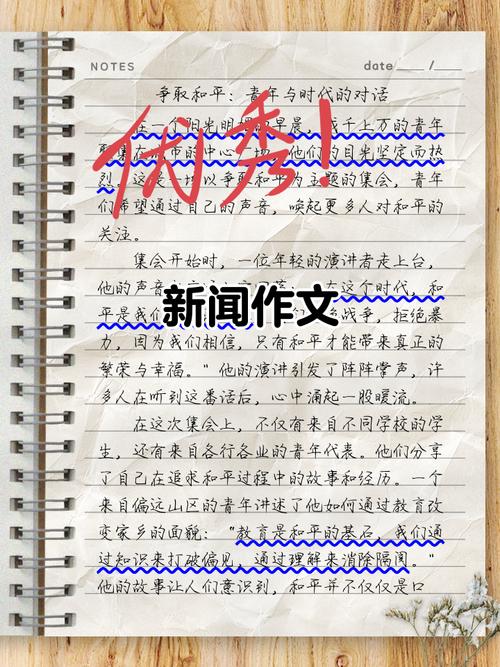 NOTES
date /
争取和平：青年与时代的对话
在一个阳光明媚的早晨，千上万的青年
聚集在城市的中心，他们的目光坚定而热
烈。这是一场以争取和平为主题的集会，青年
们希望通过自己的声音，唤起更多人对和平的
关注。
优秀！
集会开始时，一位年轻的演讲者走上台，
他的声音在这个时代，和
平是我们战争，拒绝暴
新闻作文
力，因为我们相信，只有和平才能带来真正的
繁荣与幸福。"他的演讲引发了阵阵掌声，许
多人在听到这番话后，心中涌起一股暖流。
在这次集会上，不仅有来自不同学校的学
生，还有来自各行各业的青年代表。他们分享
了自己在追求和平过程中的故事和经历。一个
来自偏远山区的青年讲述了他如何通过教育改
变家乡的面貌："教育是和平的基石，我们通
过知识来打破偏见，通过理解来消除隔阂。"
他的故事让人们意识到，和平并不仅仅是口